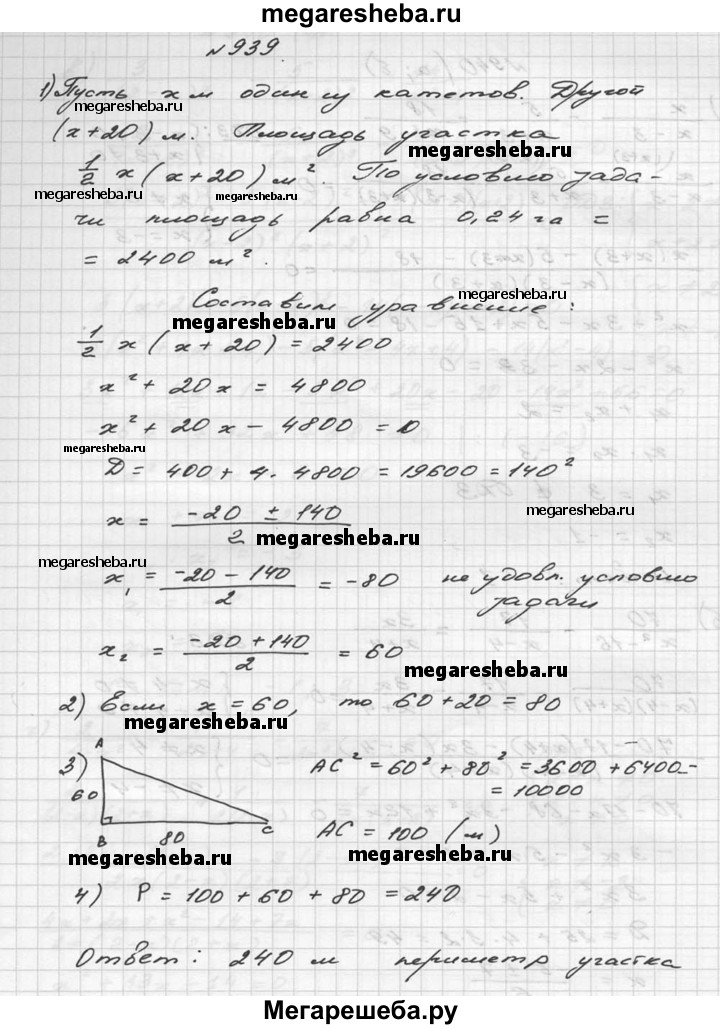 megaresheba.ru
№939
1) Пусть x м один из катетов. Другой
megaresheba.ru
(x+20) м. Площадь участка
megaresheba.ru
1/2 x(x+20) м². По условию зада-
megaresheba.ru megaresheba.ru
чи площадь равна 0,24 га =
= 2400 м².
Составим уравнение:
megaresheba.ru
megaresheba.ru
1/2 x(x+20) = 2400
x² + 20x = 4800
x² + 20x - 4800 = 0
megaresheba.ru
D = 400 + 4·4800 = 19600 = 140²
x = (-20 ± 140)/2
megaresheba.ru
megaresheba.ru
megaresheba.ru
x₁ = (-20-140)/2 = -80 не удовл. условию
задачи
x₂ = (-20+140)/2 = 60
megaresheba.ru
2) Если x = 60, то 60+20 = 80
megaresheba.ru
3) A 60 B 80 C
AC² = 60² + 80² = 3600 + 6400 =
= 10000
AC = 100 (м)
megaresheba.ru megaresheba.ru
4) P = 100 + 60 + 80 = 240
Ответ: 240 м периметр участка
Мегарешеба.ру